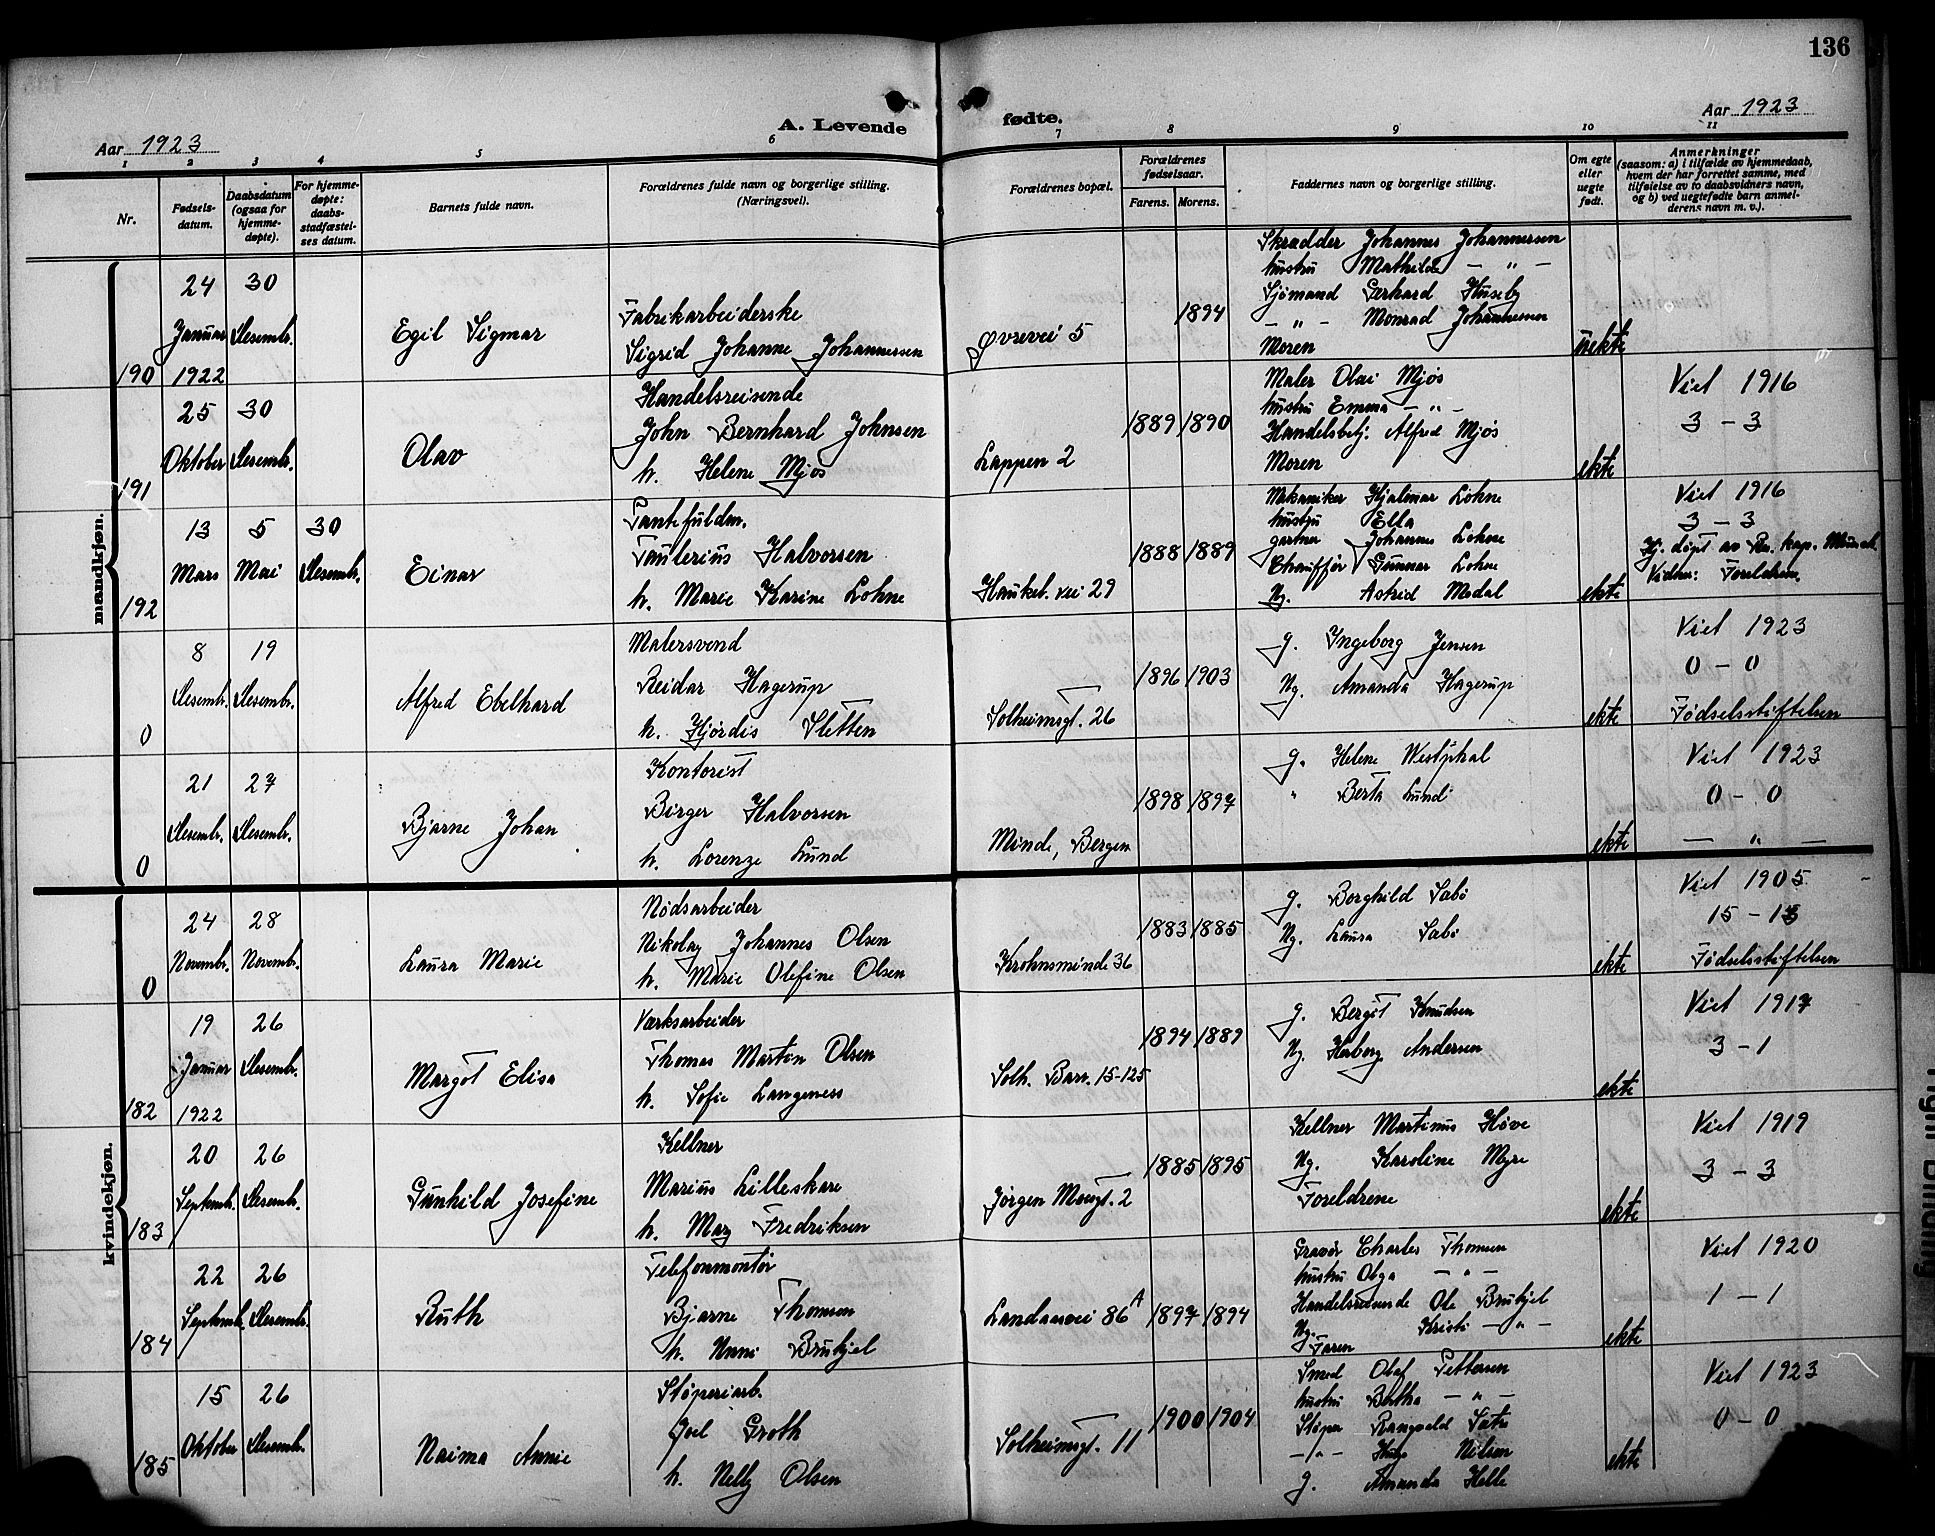 136
Aar 1923
A. Levende
fødte.
Aar 1923
1 2 3 4 5 6 7 8 9 10 11
Nr.
Fødsels-
datum.
Daabsdatum
(ogsaa for
hjemme-
døpte).
For hjemme-
døpte:
daabs-
stadfæstel-
ses datum.
Barnets fulde navn.
Forældrenes fulde navn og borgerlige stilling.
(Næringsvei).
Forældrenes bopæl.
Forældrenes
fødselsaar.
Farens. Morens.
Faddernes navn og borgerlige stilling.
Om egte
eller
uegte
født.
Anmerkninger
(saasom: a) i tilfælde av hjemmedaab,
hvem der har forrettet samme, med
tilføielse av to daabsvidners navn,
og b) ved uegtefødte barn anmel-
derens navn m. v.).
mandkjøn.
190
24 Januar 1922
30 Desembr.
Egil Sigmar
Fabrikarbeiderske
Sigrid Johanne Johannessen
Øvrevei 5
1894
Skrædder Johannes Johannessen
hustru Mathilde — " —
Sjömand Gerhard Huseby
— " — Monrad Johannessen
Moren
uekte
191
25 Oktober
30 Desembr.
Olav
Handelsreisende
John Bernhard Johnsen
h. Helene Mjøs
Lappen 2
1889 1890
Maler Olai Mjøs
hustru Emma — " —
Handelsbetj. Alfred Mjøs
Moren
ekte
Viet 1916
3 – 3
192
13 Mars
5 Mai
30 Desembr.
Einar
Pantefuldm.
Paulerius Halvorsen
h. Marie Karine Lohne
Haukel. vei 29
1888 1889
Mekaniker Hjalmar Lohne
hustru Ella
gartner Johannes Lohne
Chauffør Gunnar Lohne
Ng. Astrid Medal
ekte
Viet 1916
3 – 3
Hj. døpt av Res. kap.
Vidner: Foreldrene
0
8 Desembr.
19 Desembr.
Alfred Ebelhard
Malersvend
Reidar Hagerup
h. Hjørdis Sletten
Solheimsgt. 26
1896 1903
g. Ingeborg Jensen
Ng. Amanda Hagerup
ekte
Viet 1923
0 – 0
Fødselsstiftelsen
0
21 Desembr.
27 Desembr.
Bjarne Johan
Kontorist
Birger Halvorsen
h. Lorenze Lund
Minde, Bergen
1898 1897
g. Helene Westphal
" Berta Lund
ekte
Viet 1923
0 – 0
— " —
kvindekjøn.
0
24 Novembr.
28 Novembr.
Laura Marie
Nødsarbeider
Nikolay Johannes Olsen
h. Marie Olefine Olsen
Krohnsminde 36
1883 1885
g. Borghild Sabø
Ng. Laura Sabø
ekte
Viet 1905
15 – 13
Fødselsstiftelsen
182
19 Januar 1922
26 Desembr.
Margot Elisa
Værksarbeider
Thomas Martin Olsen
h. Sofie Langeness
Solh. Barr. 15-125
1894 1889
g. Bergit Knudsen
Ng. Herborg Andersen
ekte
Viet 1917
3 – 1
183
20 Septembr.
26 Desembr.
Gunhild Josefine
Kellner
Marius Lilleskare
h. May Fredriksen
Jørgen Moegt. 2
1885 1895
Kellner Martinus Høve
Ng. Karoline Myre
Foreldrene
ekte
Viet 1919
3 – 3
184
22 Septembr.
26 Desembr.
Ruth
Telefonmontør
Bjarne Thomsen
h. Anni Brukjel
Landaasvei 86 A
1897 1894
Gravør Charles Thomsen
hustru Olga — " —
Handelsreisende Ole Brukjel
Ng. Kristi — " —
Faren
ekte
Viet 1920
1 – 1
185
15 Oktober
26 Desembr.
Naima Annie
Støperiarb.
Joel Groth
h. Nelly Olsen
Solheimsgt. 11
1900 1904
Smed Olaf Pettersen
hustru Bertha — " —
Støper Rangvald Sætre
— " — Hugo Nilsen
g. Amanda Helle
ekte
Viet 1923
0 – 0